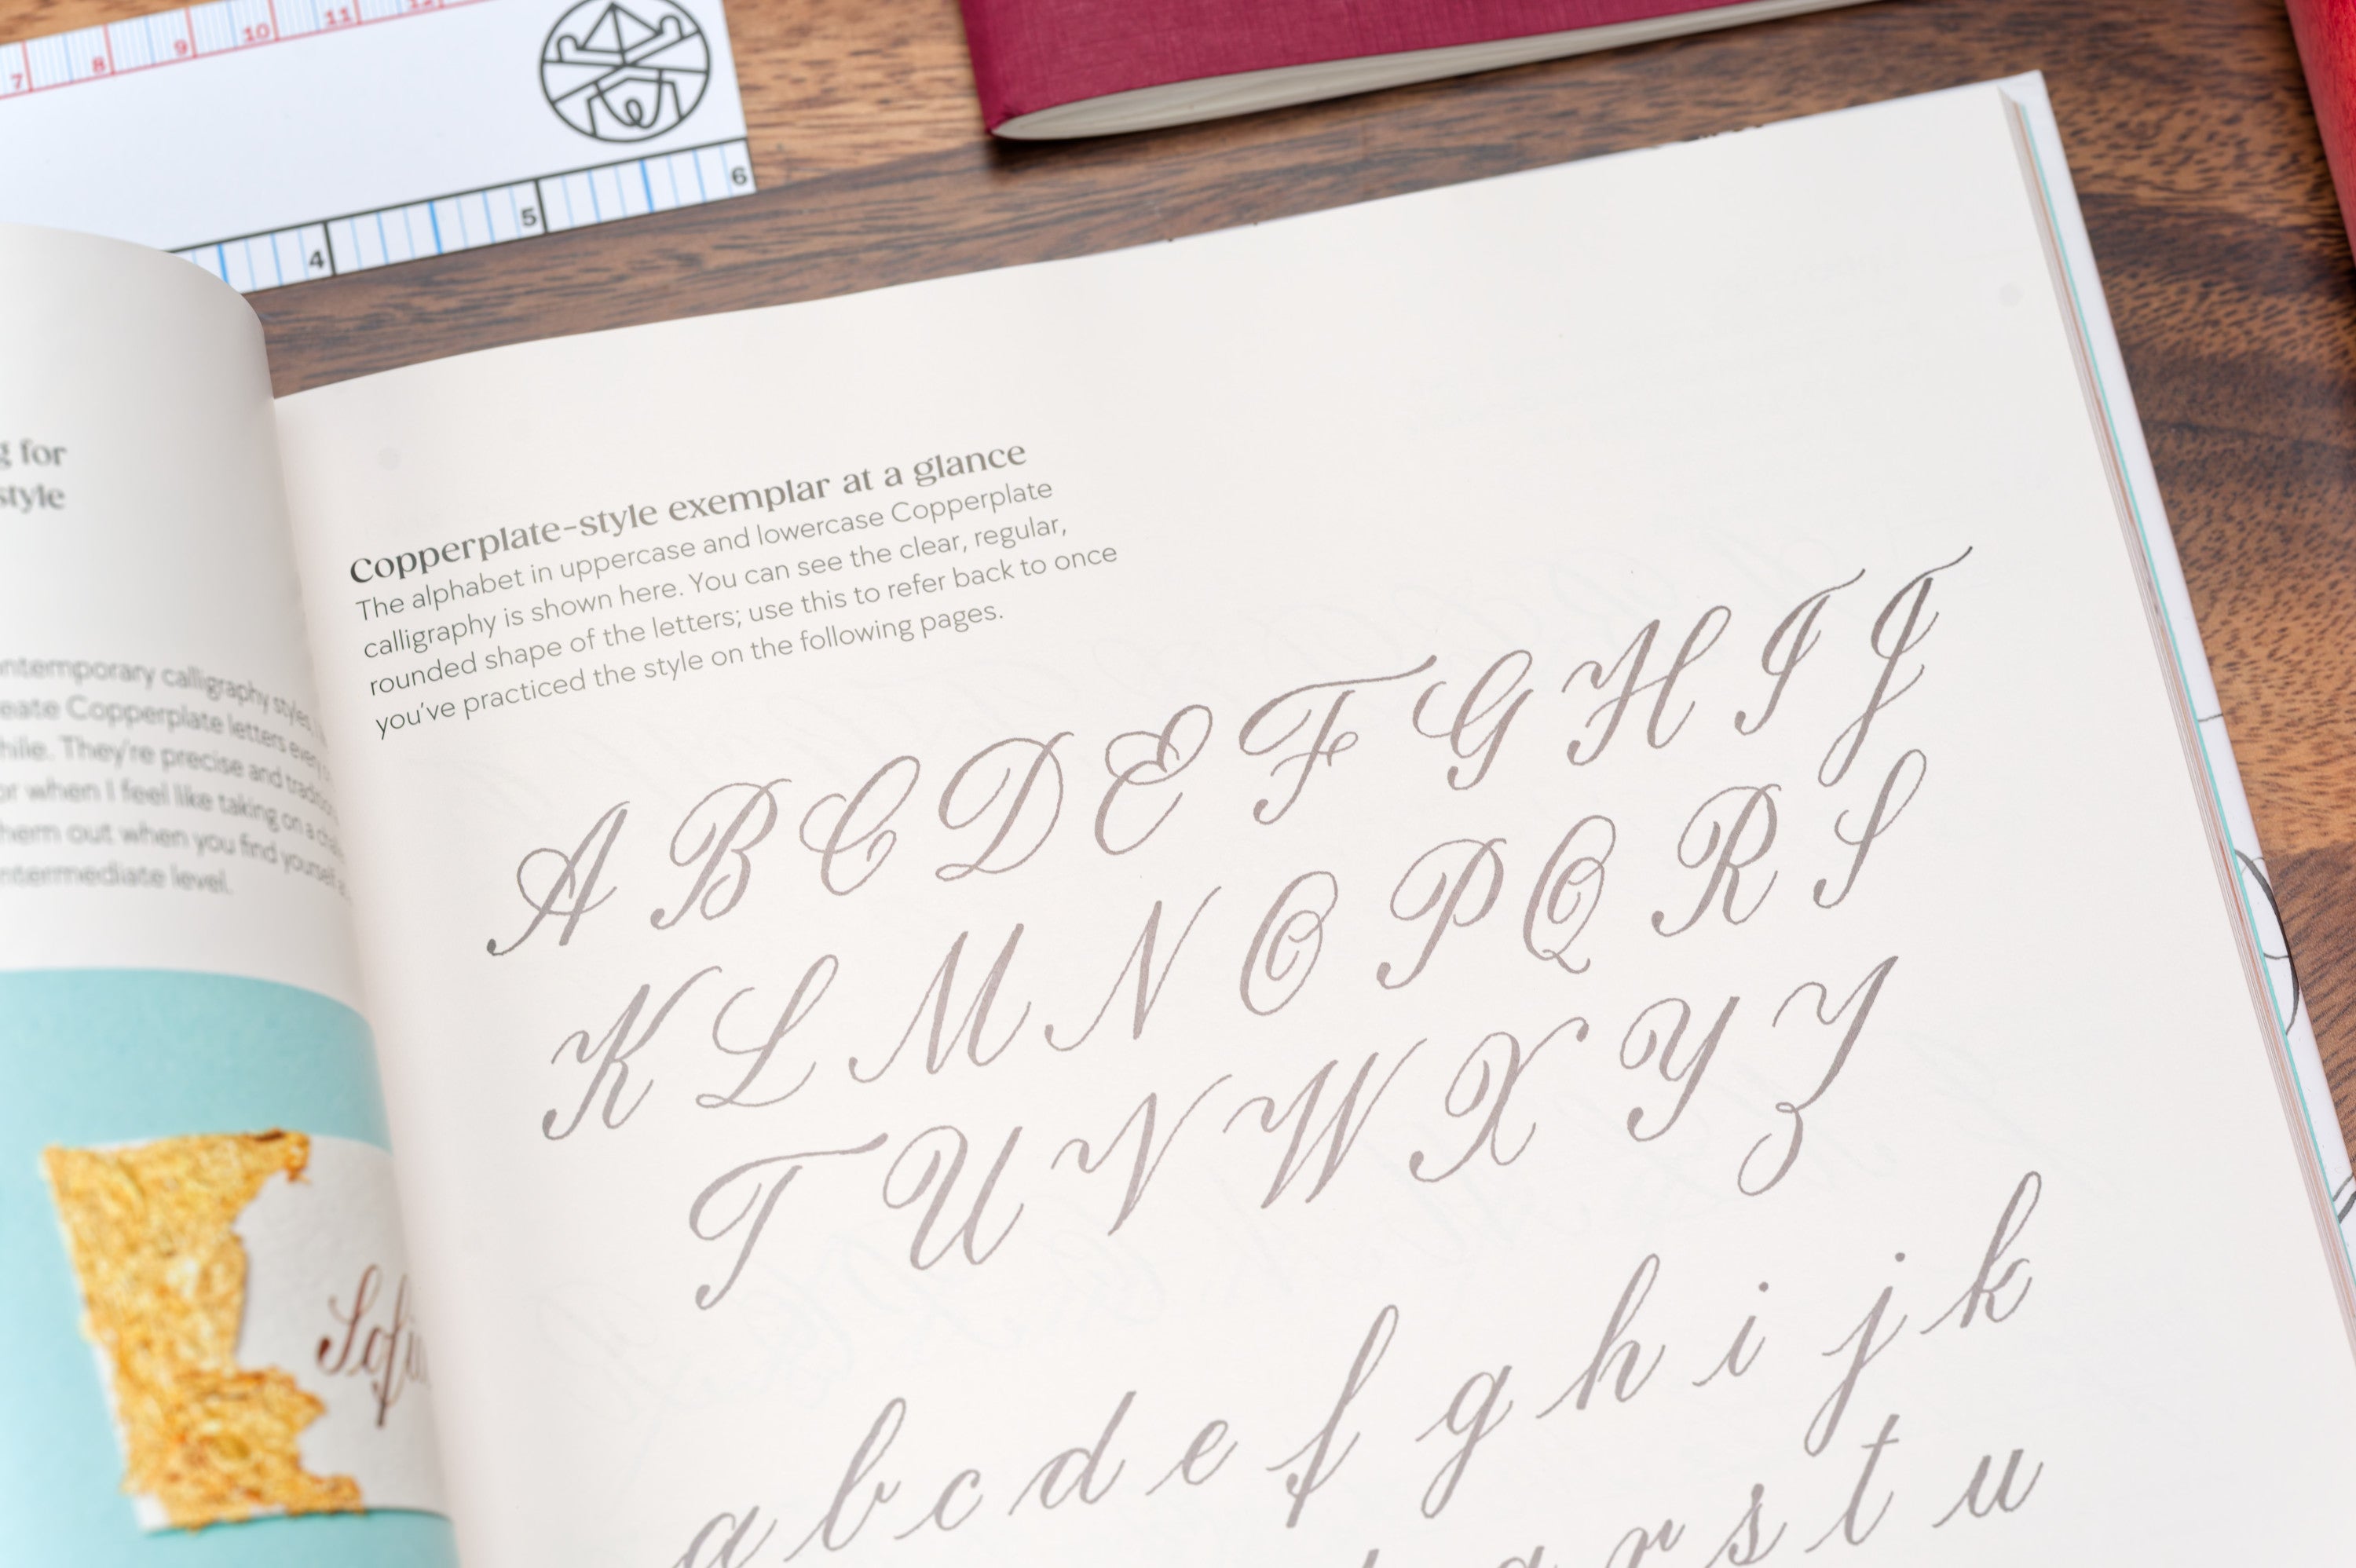 7 8 9 10 11 12
4 5 6
g for
style
ontemporary calligraphy styles,
eate Copperplate letters every
hile. They're precise and
or when I feel like taking on a
hem out when you find yourself
ntermediate level.
Sofia
Copperplate-style exemplar at a glance
The alphabet in uppercase and lowercase Copperplate
calligraphy is shown here. You can see the clear, regular,
rounded shape of the letters; use this to refer back to once
you've practiced the style on the following pages.
A B C D E F G H I J
K L M N O P Q R S
T U V W X Y Z
a b c d e f g h i j k
q r s t u